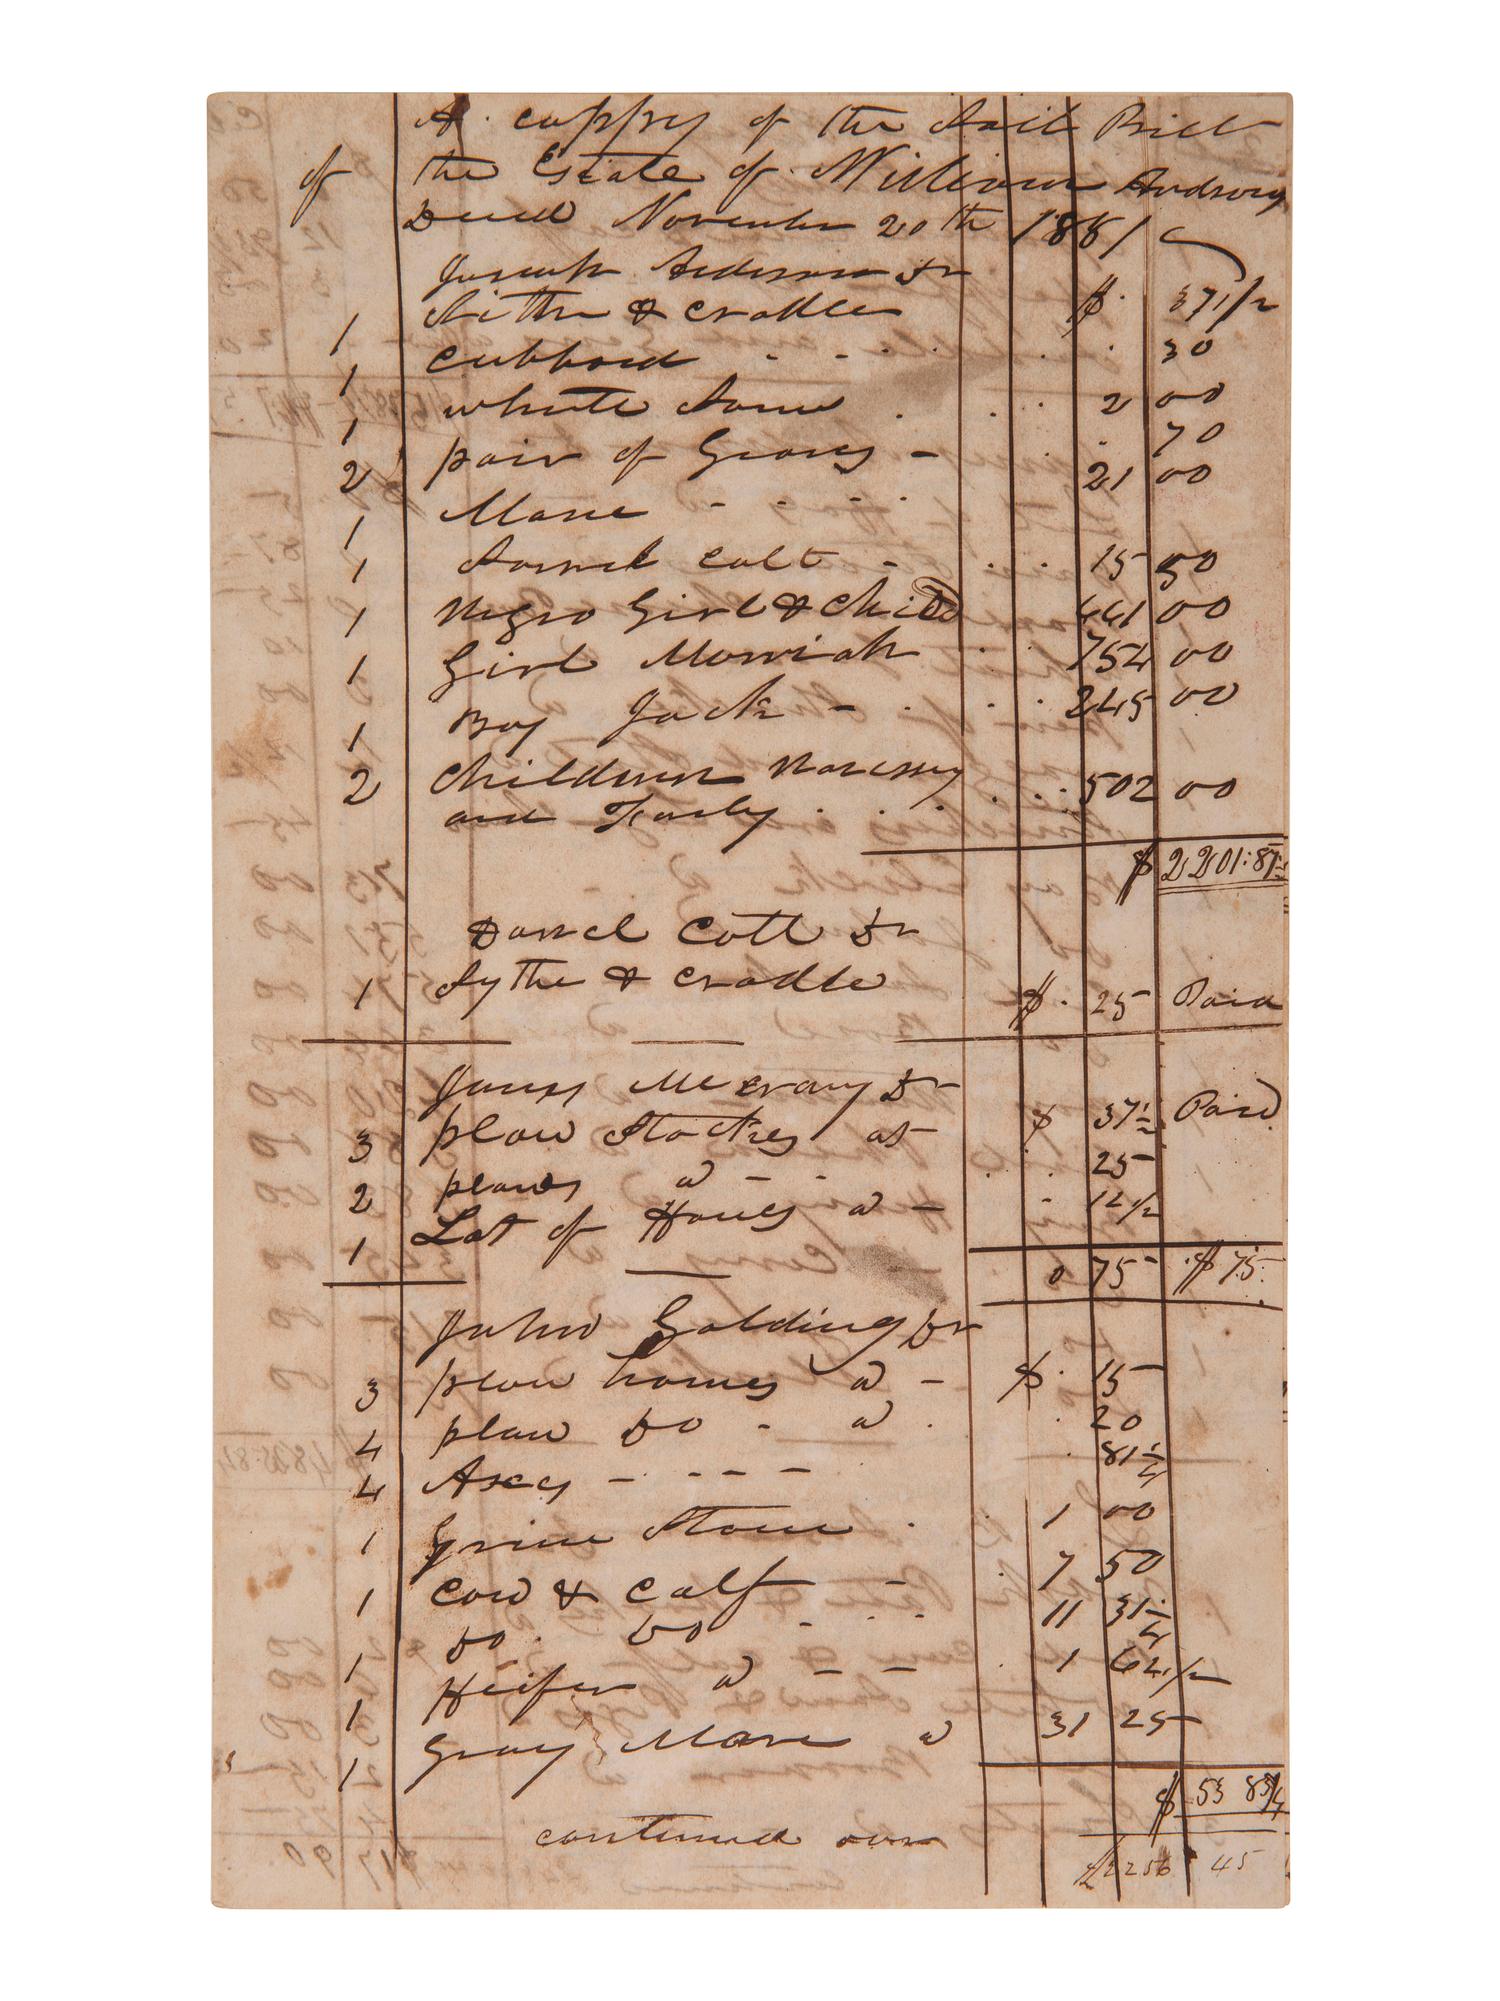 A. coppy of the Sail Bill
of the Estate of William Andrews
Decd November 20th 1881
Joseph Anderson Dr
1 Sithe & Cradle $ . 37 1/2
1 Cubbord - - - . 30
1 whute 2 00
2 pair of Gears - . 70
1 Mare - - - - 21 00
1 Sorrel Colt - 15 50
1 Negro Girl & Child 441 00
1 Girl Morriah 754 00
1 Boy Jack - 245 00
2 Children Narcissy 502 00
and
$ 2201:87 1/2
Dannel Cott Dr
1 Sythe & Cradle $ . 25 Paid
James McCrary Dr
3 plow Stockes at $ 37 1/2 Paid
2 plows a - . 25
1 Lot of Houes a - . 12 1/2
0 75 $ 75
John Golding Dr
3 plow homes a - $ . 15
4 plow Do - a . 20
4 Axes - - - - . 81 1/4
1 Grine Stone . 1 00
1 Cow & Calf - 7 50
1 Do. Do - - - 11 31 1/4
1 Heifer a - - 1 62 1/2
1 Gray Mare a 31 25
$ 53 83 3/4
continued over $2256 45